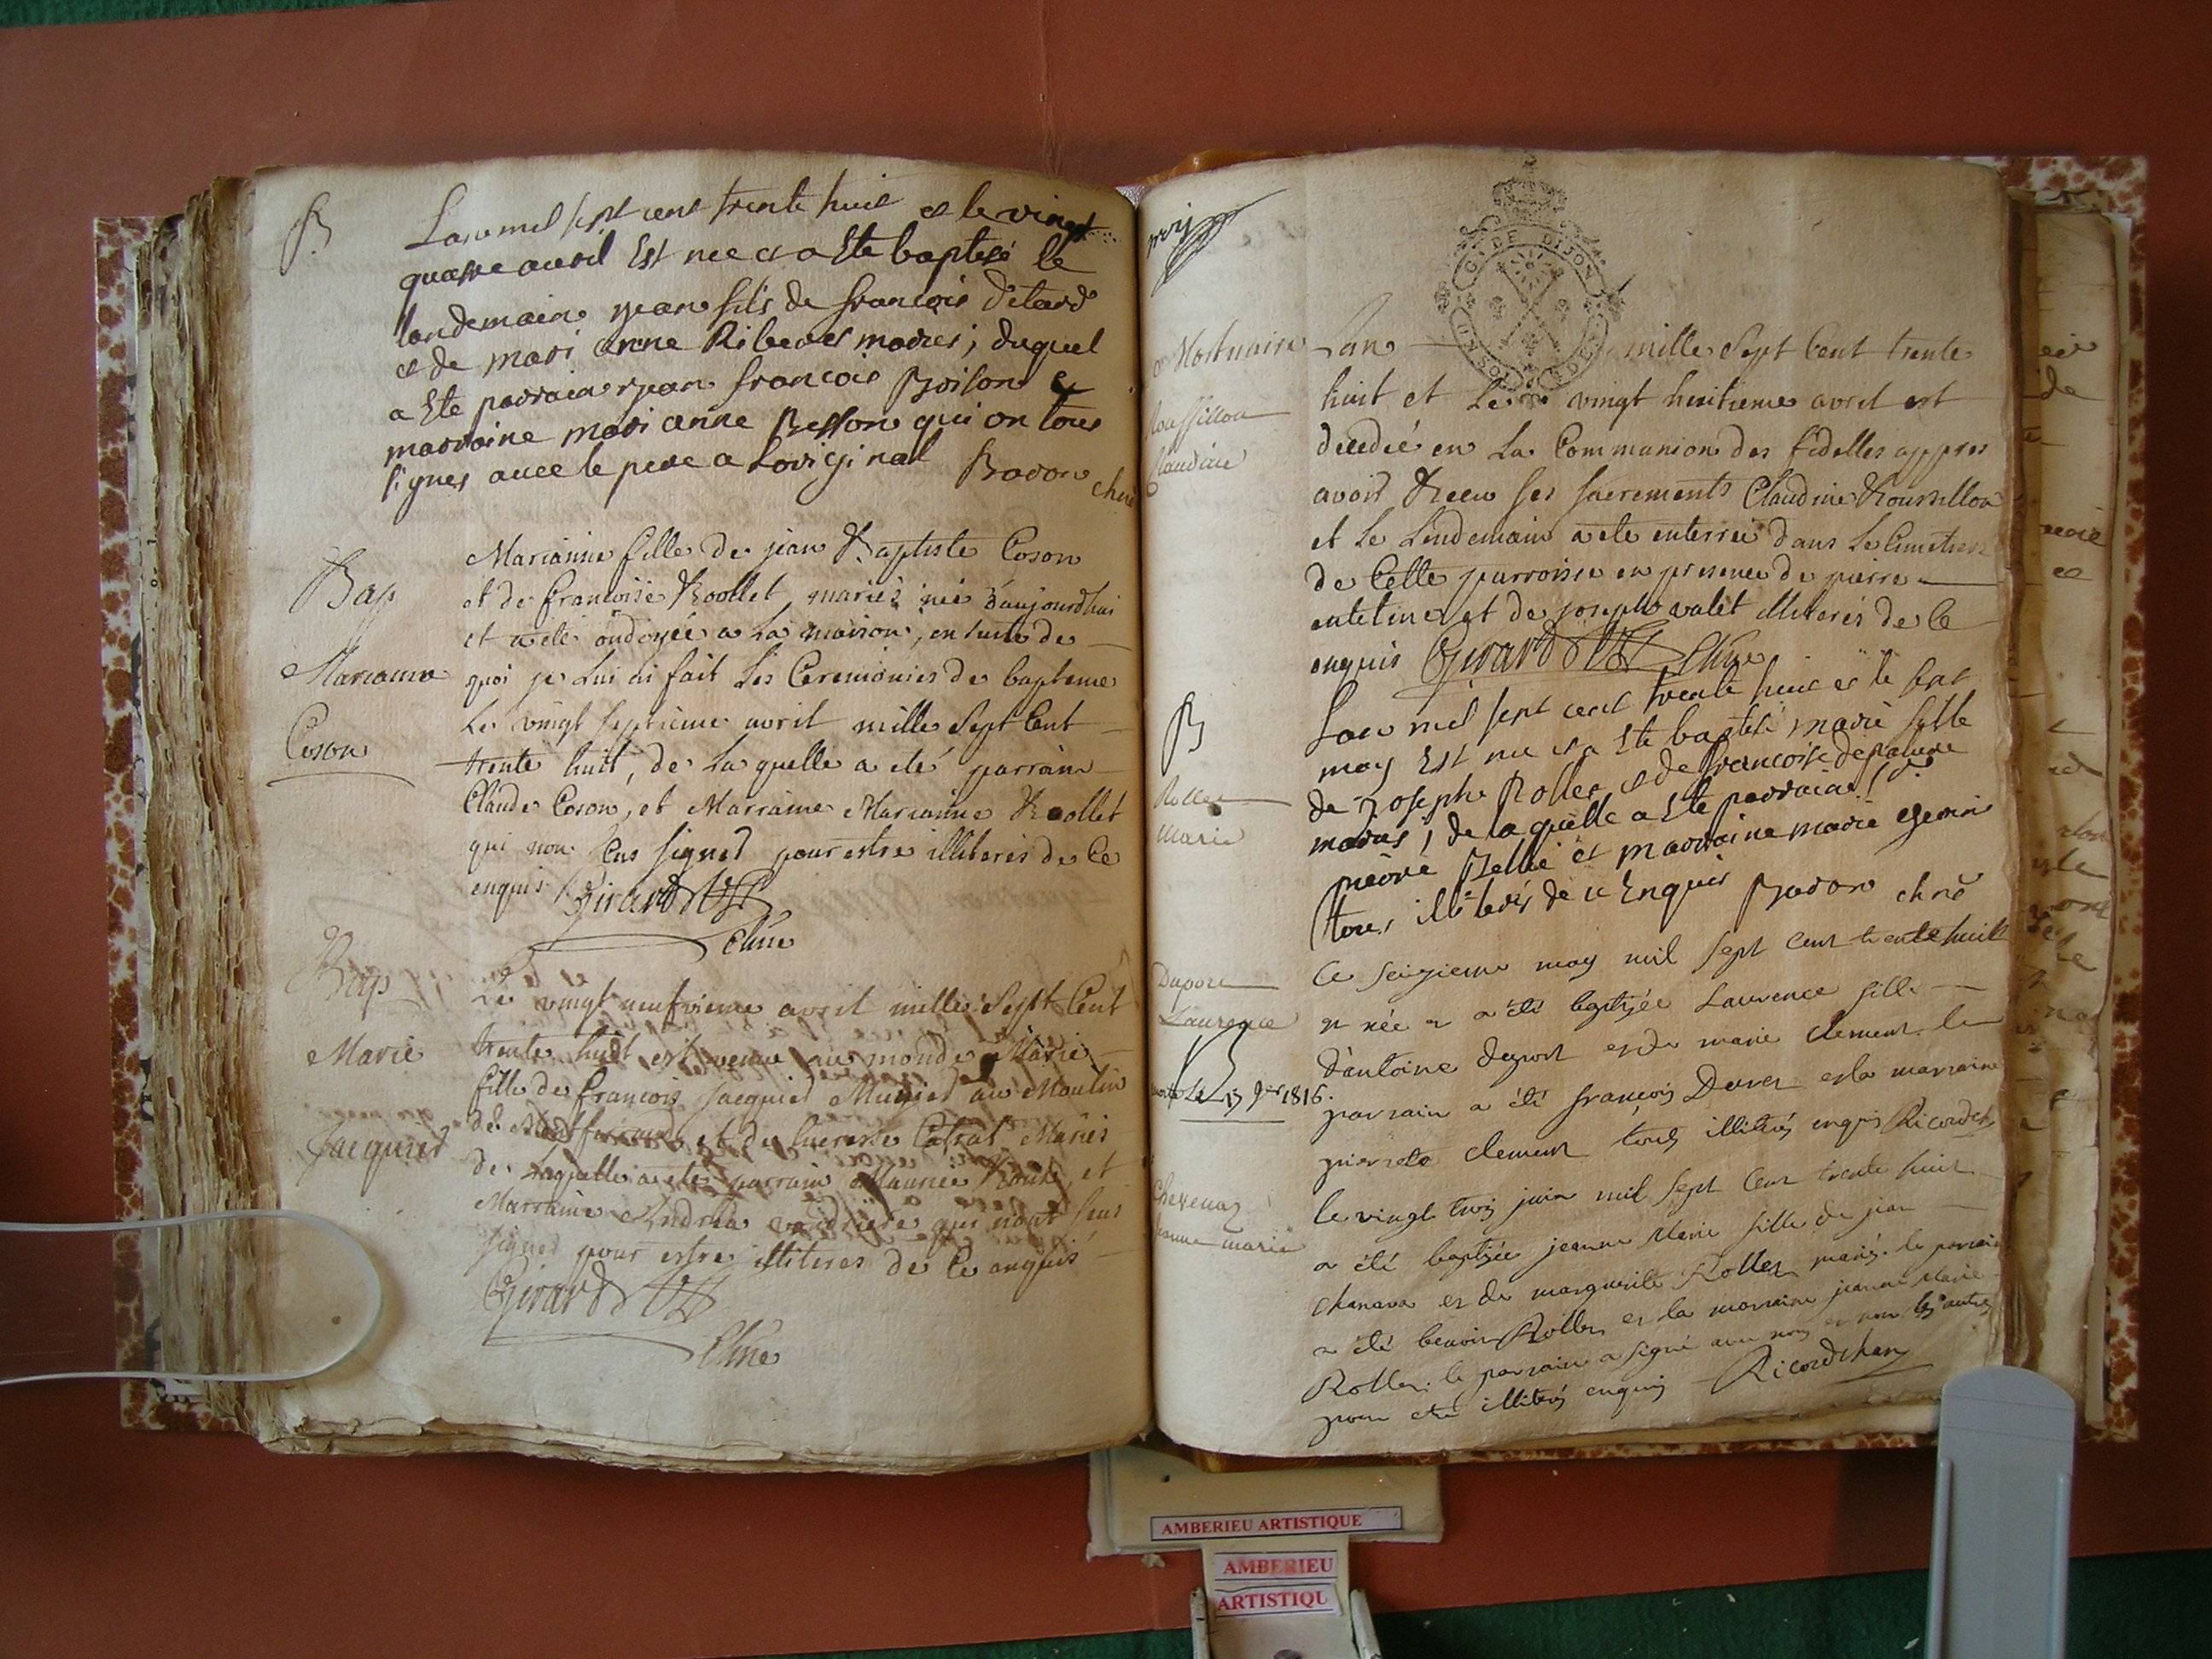 B
Lan mel sept cent trente huit et le vingt
quattre avril Est nee et a Ete baptisé le
landemain jean fils de francois ditard
et de mari anne Ribevet mariés; duquel
a Ete parrain jean francois Boison et
marraine mari anne Besson qui on tous
signes avec le pere a Loriginal Badon chne
Bap
Marianne
Coson
Marianne fille de jean Baptiste Coson
et de francoise Roollet mariés née d'aujourdhui
et a eté ondoyée a la maison, en suite de
quoi je Lui ai fait Les Ceremonies de bapteme
Le vingt septieme avril mille Sept Cent
trente huit, de La quelle a eté parrain
Claude Coson, et Marraine Marianne Roollet
qui non Cus signed pour estre illiterés de Ce
enquis Girard
Chne
Bap
Marie
Jacquiet
Le vingt neufvieme avril mille Sept Cent
trente huit est venue au monde Marie
fille de francois Jacquied Munied au Moulin
de et de Mariés
de Laquelle a eté parrain Maurice et
Marraine Andréa qui n'ont seus
signer pour estre illiteres de Ce enquis
Girard
Chne
G. DE DIJON
Mortuaire
Roussillon
Claudine
Lan mille Sept Cent trente
huit et Le vingt huitieme avril est
decedée en La Communion des fidelles appres
avoir Receu ses sacrements Claudine Roussillon
et Le Lendemain a ete enterrée dans Le Cimetiere
de Cette parroisse en presence de pierre
entelme et de joseph valet illiterés de Ce
enquis Girard Chne
B
Rollet
Marie
Lan mel sept cent trente huit et le sept
may Est nee et a Ete baptisé marie fille
de Joseph Rollet et de francoise depalude
mariés; de laquelle a Ete parrain
pierre Bellie et marraine marie
tous illiterés de ce Enquis Badon chne
Duport
Laurence
B
morte Le 13 9bre 1816.
Ce seizieme may mil sept cent trente huit
est née et a été baptisée Laurence fille
d'antoine duport et de marie clement le
parrain a été françois Duret et la marraine
pierrete clement tous illitérés enquis Ricordchan
Chevenaz
jeanne marie
le vingt trois juin mil sept cent trente huit
a été baptisée jeanne Marie fille de jean
chanavaz et de marguerite Rollet mariés. le parrain
a été benoit Rollet et la marraine jeanne Marie
Rollet. le parrain a signé avec nous et non les autres
pour etre illitérés enquis Ricordchan
AMBERIEU ARTISTIQUE
AMBERIEU
ARTISTIQU